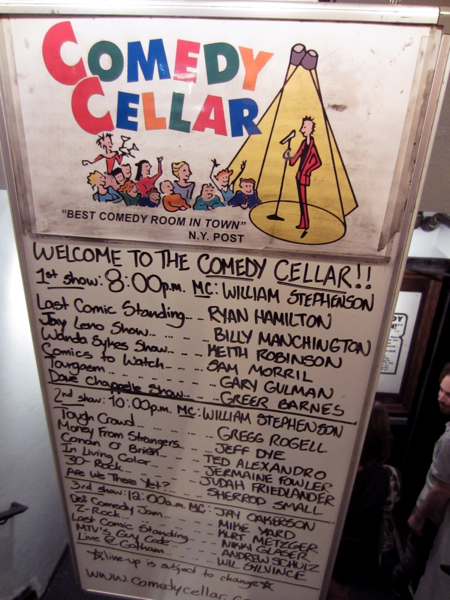 COMEDY
CELLAR
"BEST COMEDY ROOM IN TOWN"
N.Y. POST
WELCOME TO THE COMEDY CELLAR!!
1st show: 8:00p.m. MC: WILLIAM STEPHENSON
Last Comic Standing... RYAN HAMILTON
Jay Leno Show..... BILLY MANCHINGTON
Wanda Sykes Show..... KEITH ROBINSON
Comics to Watch..... SAM MORRIL
Tourgasm..... GARY GULMAN
Dave Chappelle Show..... GREER BARNES
2nd show: 10:00p.m. MC: WILLIAM STEPHENSON
Tough Crowd..... GREGG ROGELL
Money From Strangers..... JEFF DYE
Conan O'Brien..... TED ALEXANDRO
In Living Color..... JERMAINE FOWLER
30 Rock..... JUDAH FRIEDLANDER
Are We There Yet?..... SHERROD SMALL
3rd show: 12:00a.m. MC: JAY OAKERSON
Def Comedy Jam..... MIKE YARD
Z-Rock..... KURT METZGER
Last Comic Standing..... NIKKI GLASER
MTV's Guy Code..... ANDREW SCHULZ
Live @ Gotham..... WIL SYLVINCE
☆line-up is subject to change☆
www.comedycellar.co